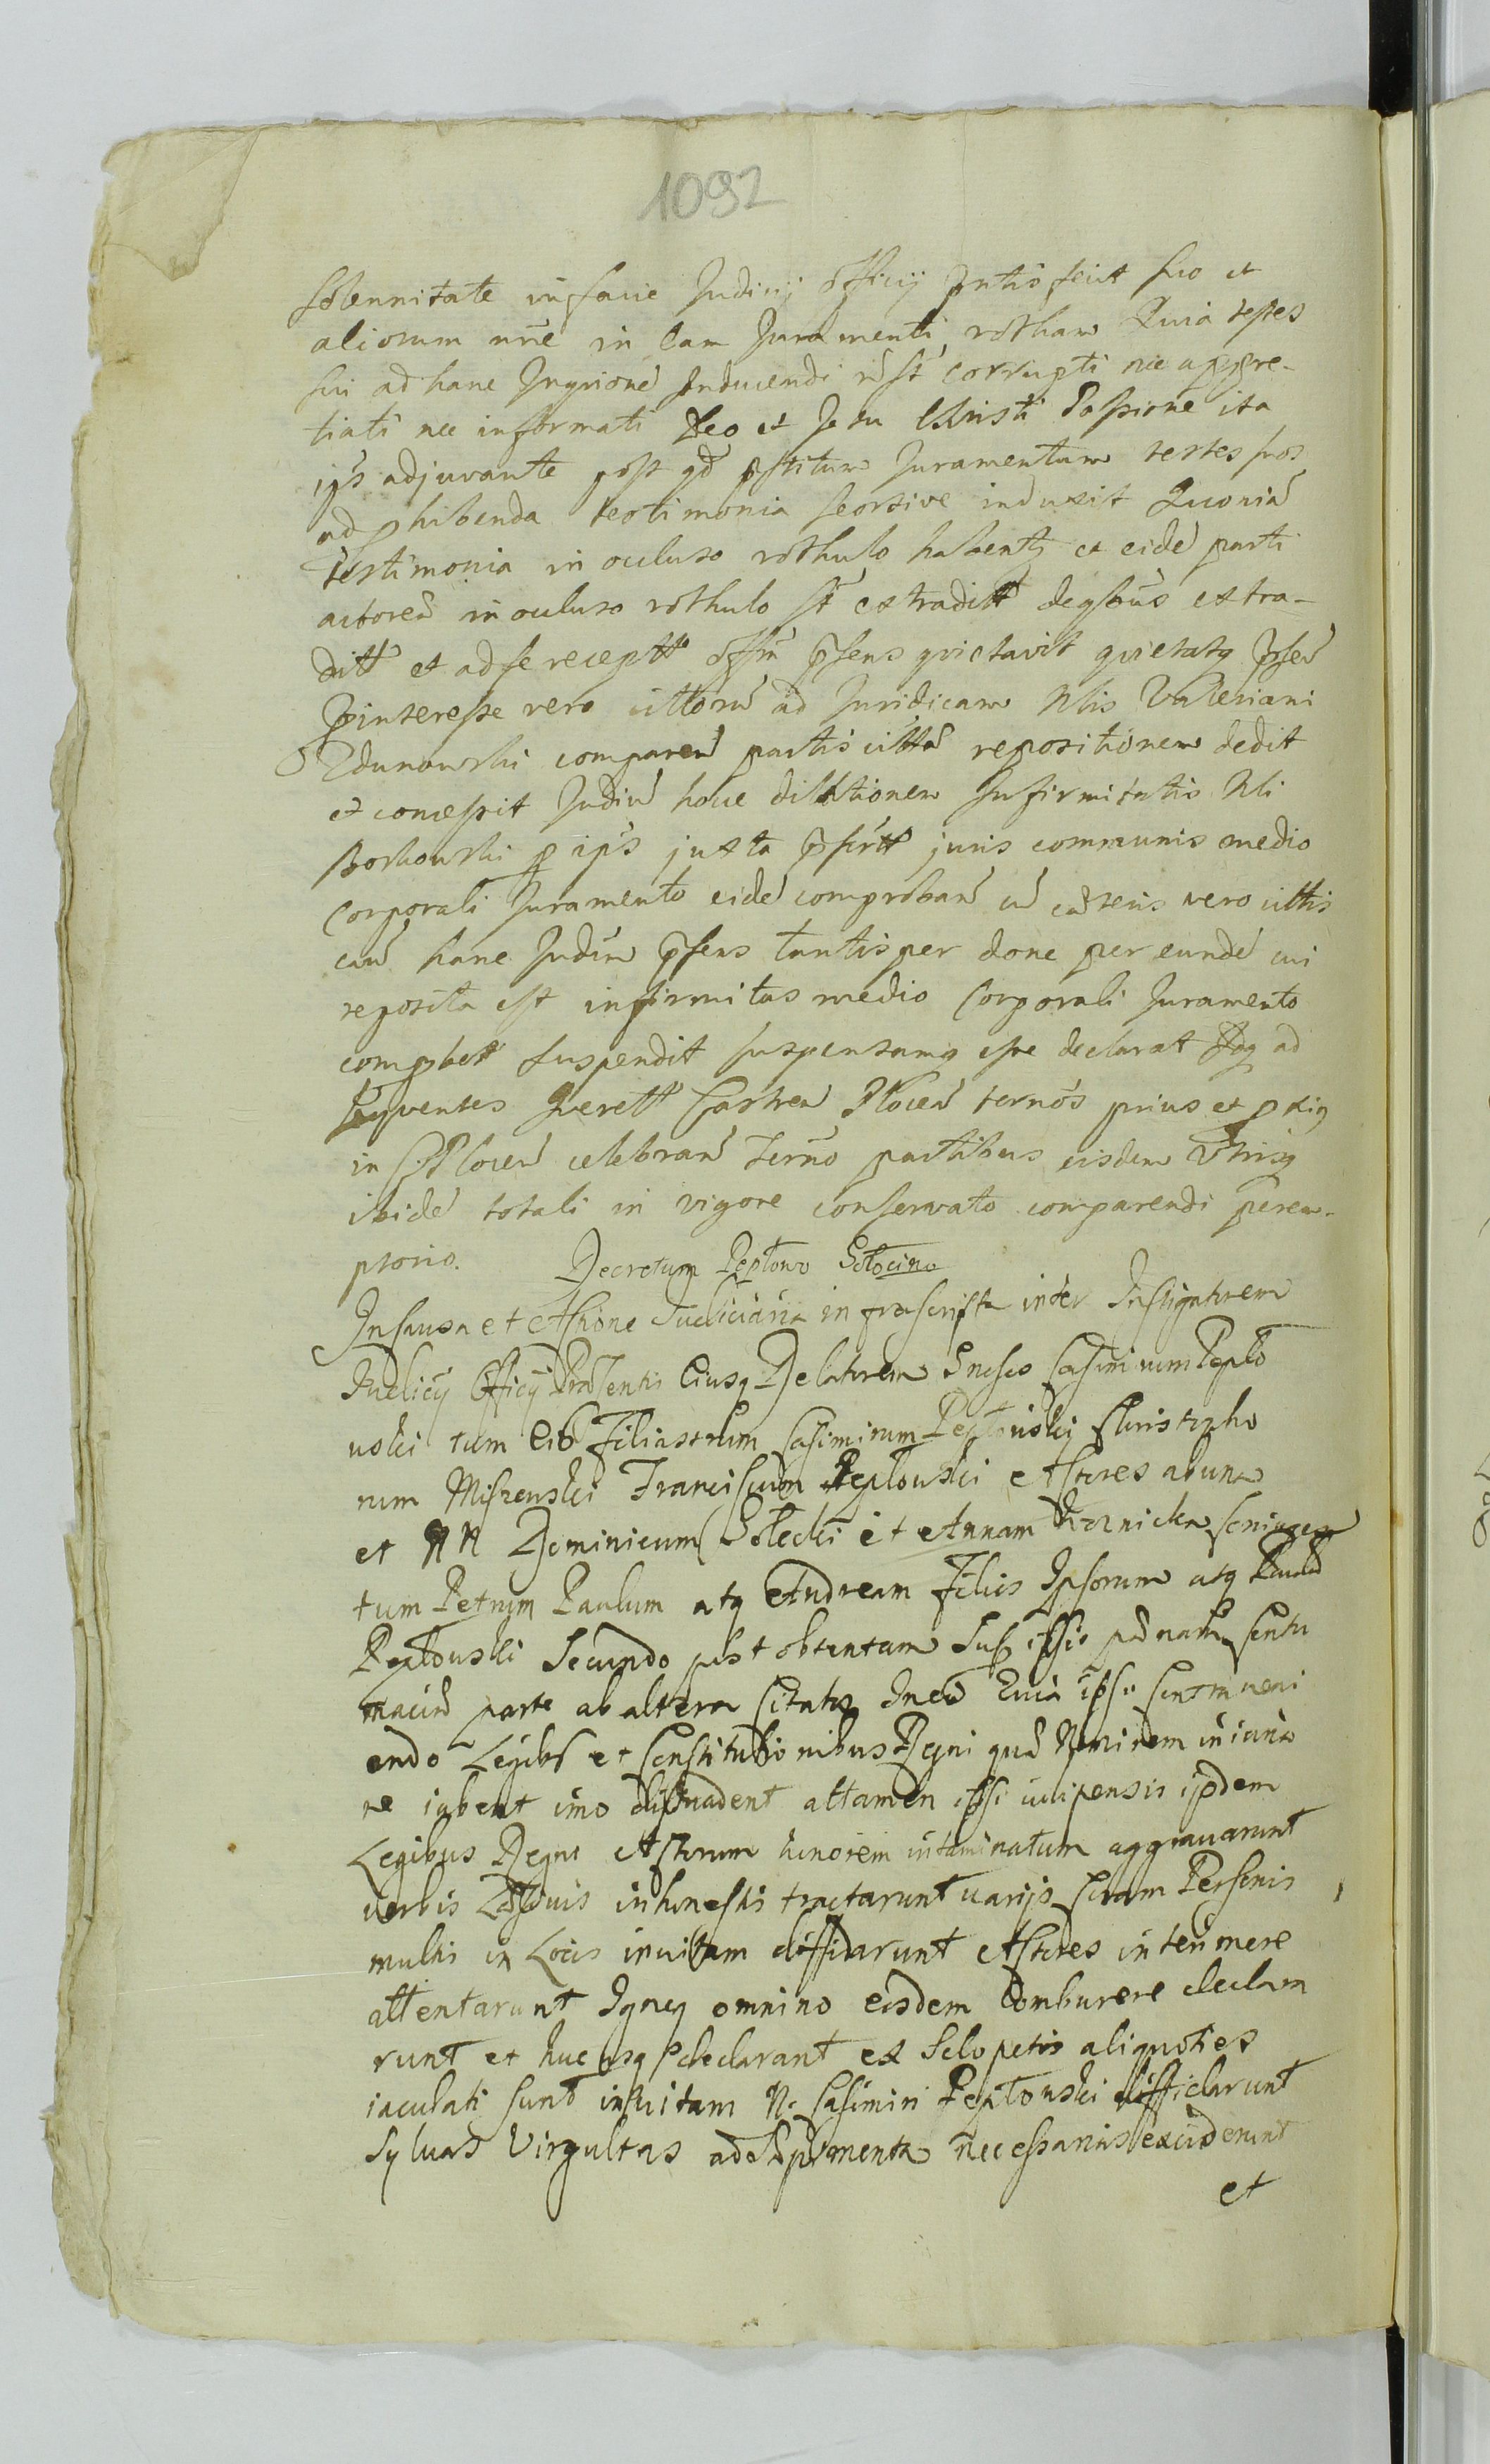 1092
solennitate in facie Judicij officij pntis fecit suo et
aliorum nne in eam Juramenti rotham Quia testes
sui ad hanc Inqnione Inducendi n st corrupti nec appre-
tiati nec informati Deo et Jesu Christi Passione ita
ips adjuvante post qd pstitum Juramentum testes suos
ad phibenda testimonia seorsive induxit Quoniã
testimonia in occluso rothulo habentq et eidẽ parti
actoreã in occluso rothulo st extraditt deqbus extra-
ditt et ad se receptt offm psens quietavit quietatq psen
p interesse vero cittoru ad Juridicam Nlis Valeriani
Zdunowski comparen partis cittã repositionem dedit
et concessit Judiu hocce dilationem Infirmitatis Nli
Borkowski p ips juxta pscrtt juris communis medio
Corporali Juramento eidẽ comproban cu cæteris vero cittis
cau hanc Judiu psens tantisper donec per eundẽ cui
reposita est infirmitas medio Corporali Juramento
compbett suspendit suspensamq esse declarat Idq ad
sequentes Querell Castren Plocen ternos prius et pxiq
in C. Plocen celebran Termo partibus eisdem Utrisq
ibidẽ totali in vigore conservato comparendi perem-
ptorio. Decretum Peplowo Solocino
In causa et Actione Judiciaria infrascripta inter Instigatorem
Judicij Officij Præsentis Eiusq Delatorem Casimirum Peplo
uski tum Filiastrum Casimirum Peplouskij Christopho
rum Miszeuski Franciscum Peplouski Actores ab una
et NN Dominicum Solecki et Annam Coniugem
tum Petrum Paulum atq Andream Filios Ipsorum atq
Peplouski Secundo post obtentam Sup ipsis pnam Contu
macia parte ab altera Citatos Ineo Quia ipsi Contraueni
endo Legibs et Constitutionibus Regni quæ Neminem iniuria
re iubent imo dissuadent attamen ipsi uilipensis ijsdem
Legibus Regni Actorum honorem intaminatum aggrauarunt
uerbis Lasciuis inhonestis tractarunt uarijs Coram Personis
multis in Locis inuitam diffidarunt Actores interimere
attentarunt Igneq omnino eosdem Comburere declara
runt et hucusq declarant ex Sclopetis aliquoties
iaculati sunt in uitam N. Casimiri Peplouski diffidarunt
Syluas Virgultas ad necessarias exciderunt
et